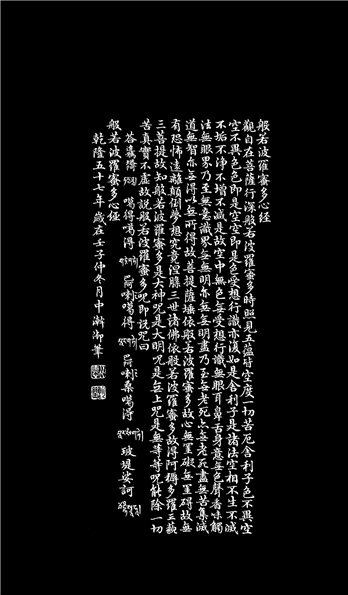 般若波羅蜜多心經
觀自在菩薩行深般若波羅蜜多時照見五蘊皆空度一切苦厄舍利子色不異空
空不異色色即是空空即是色受想行識亦復如是舍利子是諸法空相不生不滅
不垢不淨不增不減是故空中無色無受想行識無眼耳鼻舌身意無色聲香味觸
法無眼界乃至無意識界無無明亦無無明盡乃至無老死亦無老死盡無苦集滅
道無智亦無得以無所得故菩提薩埵依般若波羅蜜多故心無罣礙無罣礙故無
有恐怖遠離顛倒夢想究竟涅槃三世諸佛依般若波羅蜜多故得阿耨多羅三藐
三菩提故知般若波羅蜜多是大神呪是大明呪是無上呪是無等等呪能除一切
苦真實不虛故說般若波羅蜜多呪即說呪曰
噶得噶得 喇噶得 喇桑噶得 玻堤娑訶
般若波羅蜜多心經
乾隆五十七年歲在壬子仲冬月中澣御筆